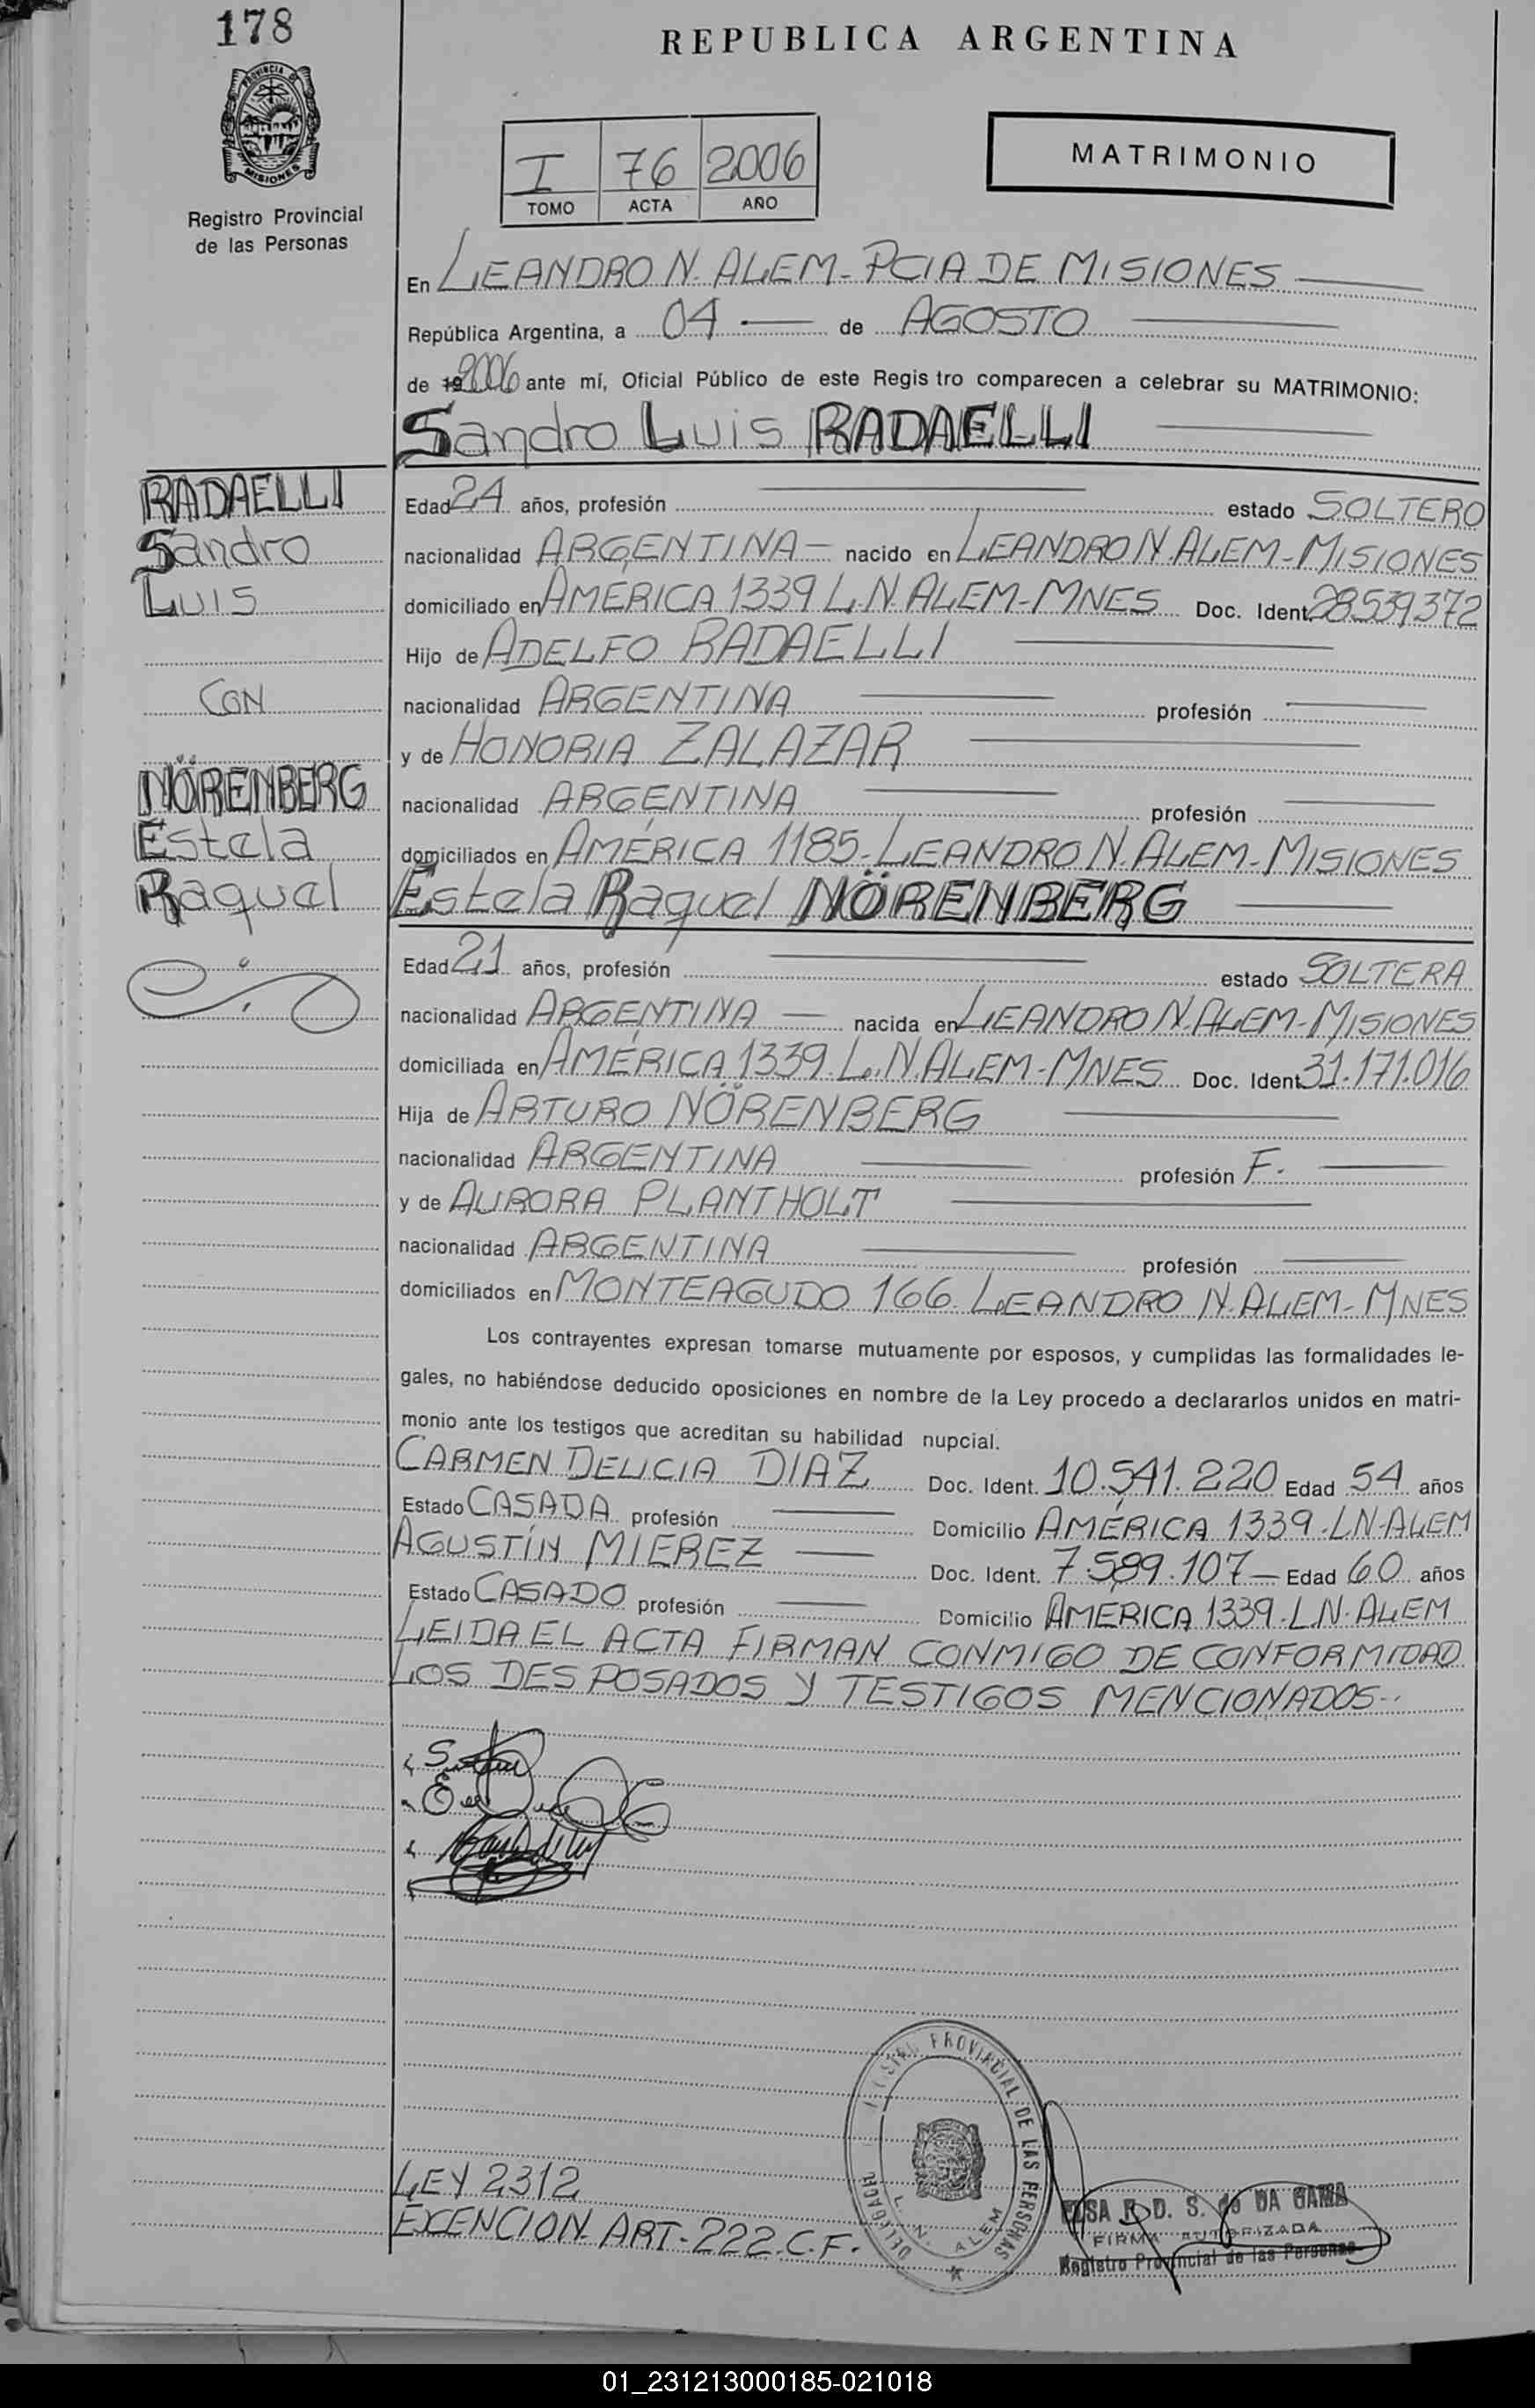 178
REPUBLICA ARGENTINA
PROVINCIA D
MISIONES
Registro Provincial
de las Personas
I 76 2006
TOMO ACTA AÑO
MATRIMONIO
En LEANDRO N. ALEM - PCIA DE MISIONES
República Argentina, a 04 — de AGOSTO
de 19 2006 ante mí, Oficial Público de este Registro comparecen a celebrar su MATRIMONIO:
Sandro Luis RADAELLI
RADAELLI
Sandro
Luis
CON
NÖRENBERG
Estela
Raquel
Edad 24 años, profesión — estado SOLTERO
nacionalidad ARGENTINA — nacido en LEANDRO N. ALEM - MISIONES
domiciliado en AMÉRICA 1339 L.N. ALEM - MNES Doc. Ident. 28539372
Hijo de ADELFO RADAELLI
nacionalidad ARGENTINA — profesión —
y de HONORIA ZALAZAR
nacionalidad ARGENTINA — profesión —
domiciliados en AMÉRICA 1185 - LEANDRO N. ALEM - MISIONES
Estela Raquel NÖRENBERG
Edad 21 años, profesión — estado SOLTERA
nacionalidad ARGENTINA — nacida en LEANDRO N. ALEM - MISIONES
domiciliada en AMÉRICA 1339 L.N. ALEM - MNES Doc. Ident. 31.171.016
Hija de ARTURO NÖRENBERG
nacionalidad ARGENTINA — profesión F. —
y de AURORA PLANTHOLT
nacionalidad ARGENTINA — profesión —
domiciliados en MONTEAGUDO 166 LEANDRO N. ALEM - MNES
Los contrayentes expresan tomarse mutuamente por esposos, y cumplidas las formalidades le-
gales, no habiéndose deducido oposiciones en nombre de la Ley procedo a declararlos unidos en matri-
monio ante los testigos que acreditan su habilidad nupcial.
CARMEN DELICIA DIAZ Doc. Ident. 10.541.220 Edad 54 años
Estado CASADA profesión — Domicilio AMÉRICA 1339 - LN. ALEM
AGUSTÍN MIEREZ — Doc. Ident. 7.589.107 — Edad 60 años
Estado CASADO profesión — Domicilio AMERICA 1339 - L.N. ALEM
LEIDA EL ACTA FIRMAN CONMIGO DE CONFORMIDAD
LOS DESPOSADOS Y TESTIGOS MENCIONADOS..
PROVINCIAL DE LAS PERSONAS
L. N. ALEM
LEY 2312
EXENCION ART. 222 C.F.
ELSA D. S. de DA GAMA
FIRMA AUTORIZADA
Registro Provincial de las Personas
01_231213000185-021018